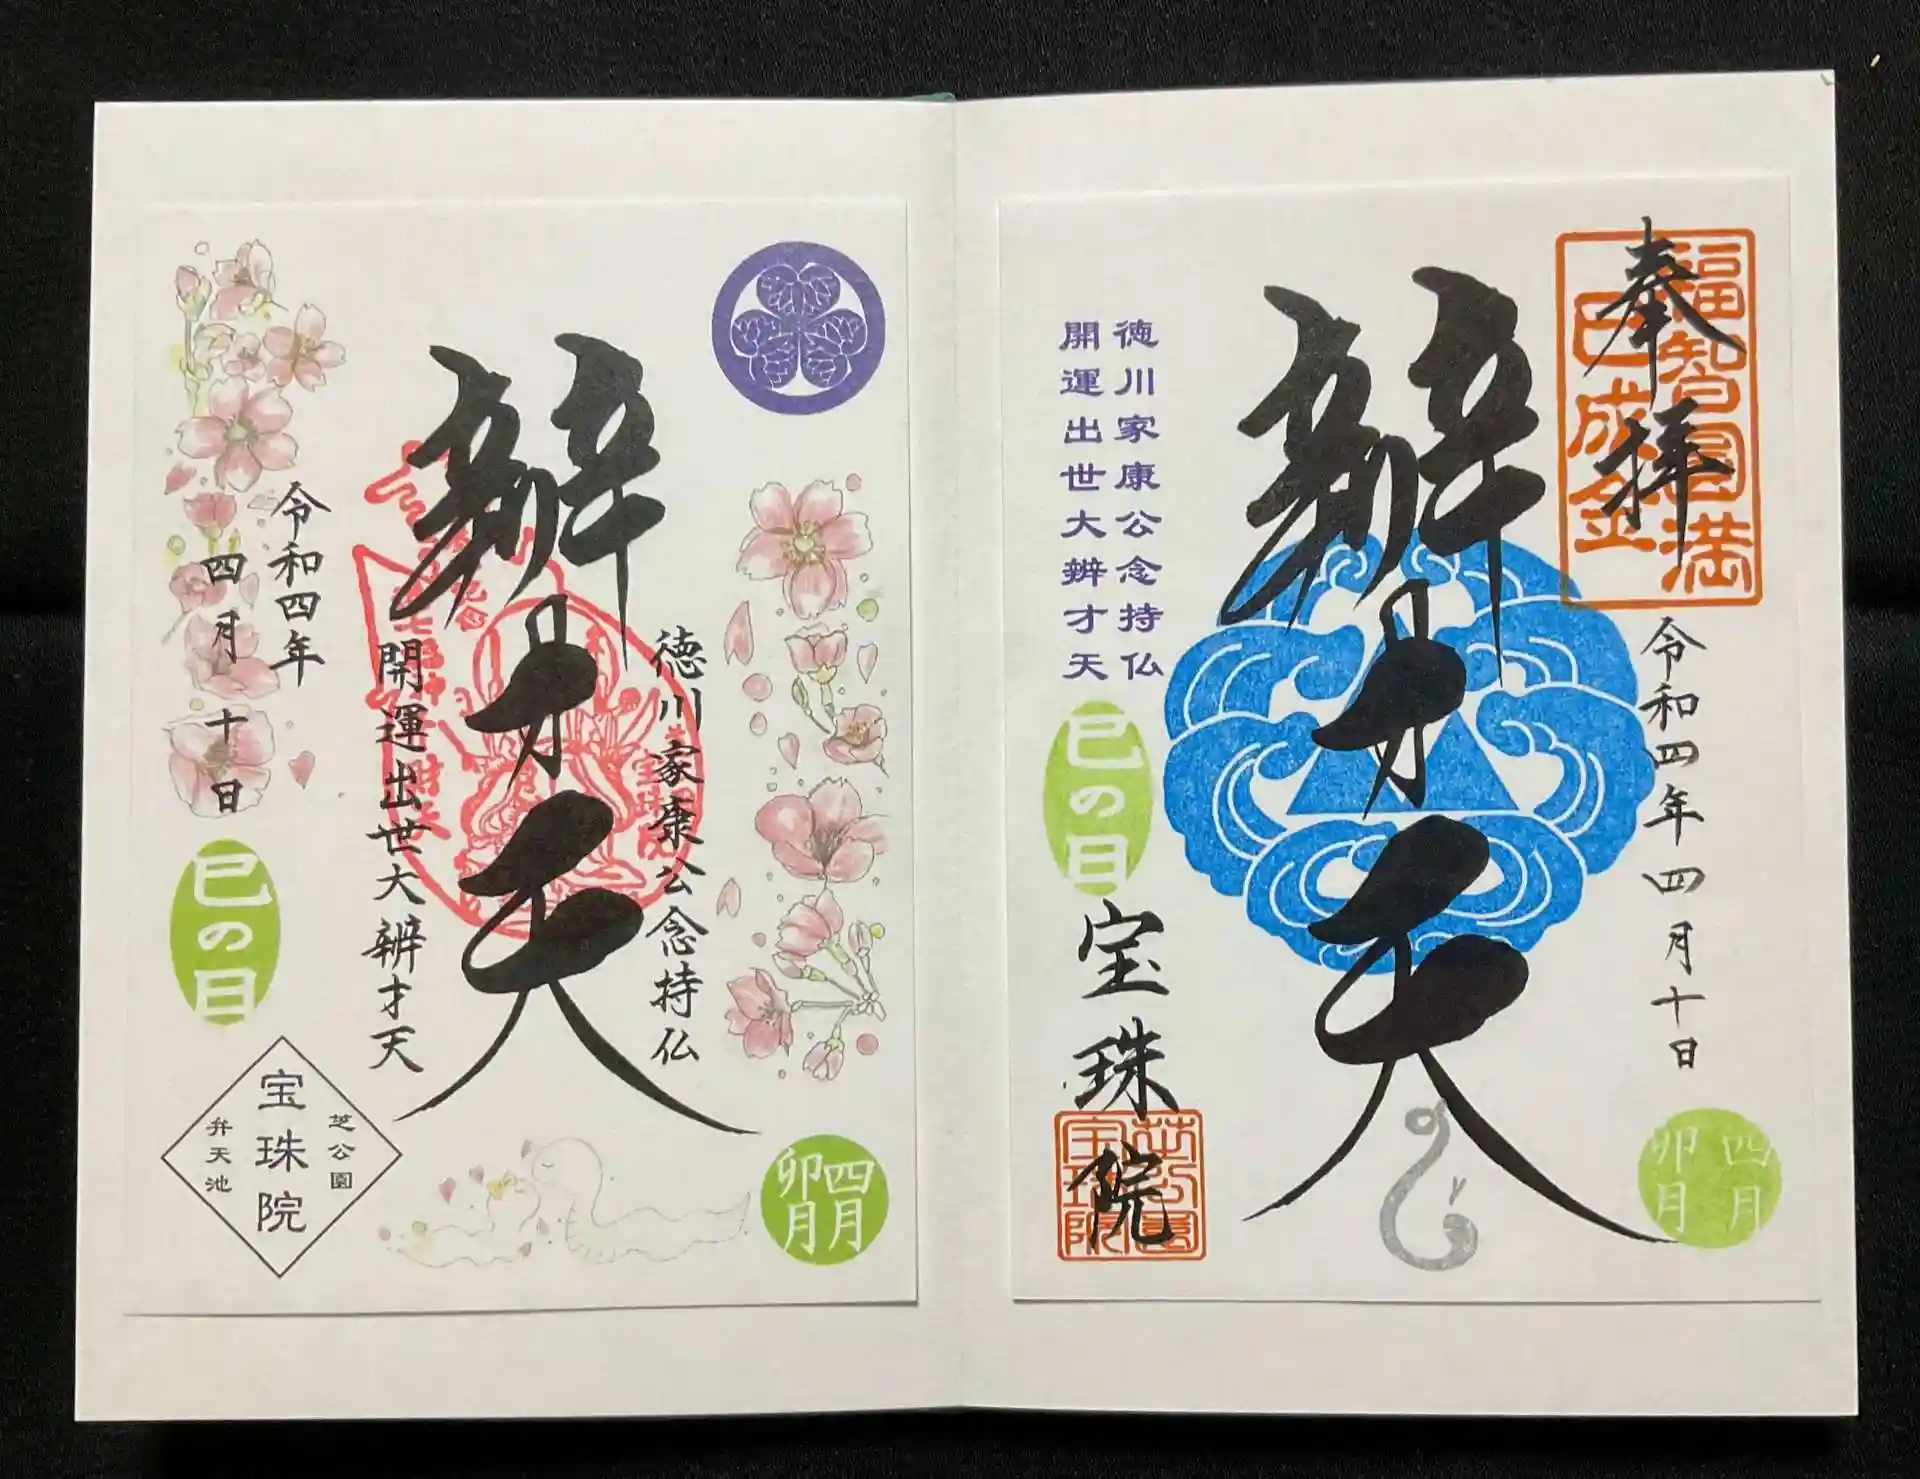 奉拝
福智円満
巳成金
令和四年四月十日
辨才天
徳川家康公念持仏
開運出世大辨才天
巳の日
宝珠院
四月
卯月
徳川家康公念持仏
辨才天
開運出世大辨才天
令和四年
四月十日
巳の日
芝公園
宝珠院
弁天池
四月
卯月